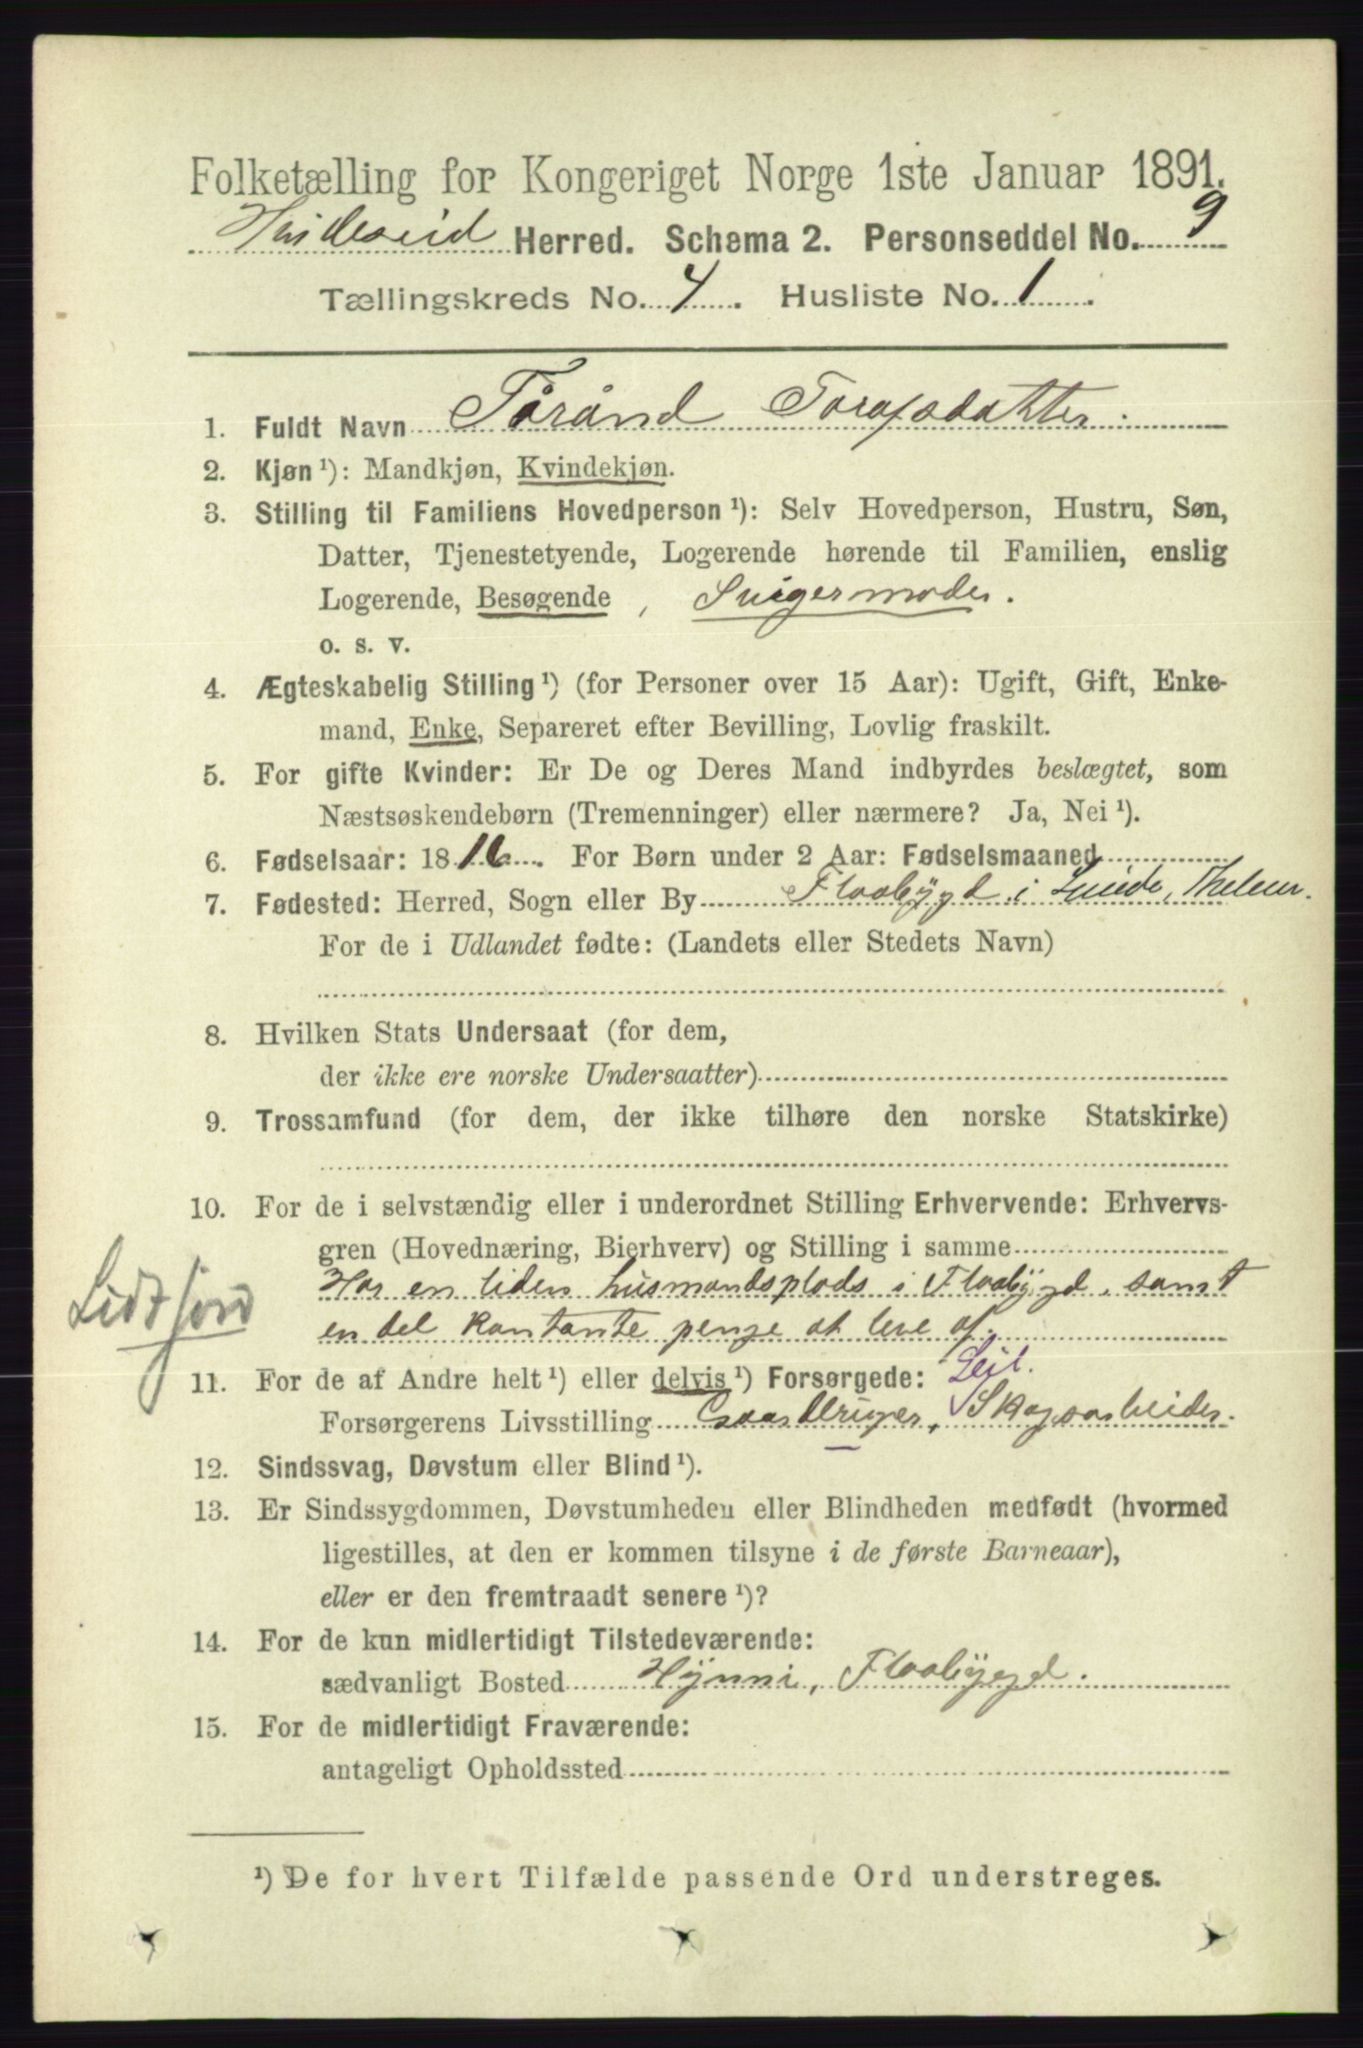 Folketælling for Kongeriget Norge 1ste Januar 1891.
Hvideseid Herred. Schema 2. Personseddel No. 9
Tællingskreds No. 4. Husliste No. 1.
1. Fuldt Navn Tårånd Torafsdatter.
2. Kjøn ¹): Mandkjøn, Kvindekjøn.
3. Stilling til Familiens Hovedperson ¹): Selv Hovedperson, Hustru, Søn,
Datter, Tjenestetyende, Logerende hørende til Familien, enslig
Logerende, Besøgende, Svigermoder.
o. s. v.
4. Ægteskabelig Stilling ¹) (for Personer over 15 Aar): Ugift, Gift, Enke-
mand, Enke, Separeret efter Bevilling, Lovlig fraskilt.
5. For gifte Kvinder: Er De og Deres Mand indbyrdes beslægtet, som
Næstsøskendebørn (Tremenninger) eller nærmere? Ja, Nei ¹).
6. Fødselsaar: 1816. For Børn under 2 Aar: Fødselsmaaned
7. Fødested: Herred, Sogn eller By Flaabygd i Lunde, Thelem.
For de i Udlandet fødte: (Landets eller Stedets Navn)
8. Hvilken Stats Undersaat (for dem,
der ikke ere norske Undersaatter)
9. Trossamfund (for dem, der ikke tilhøre den norske Statskirke)
10. For de i selvstændig eller i underordnet Stilling Erhvervende: Erhvervs-
gren (Hovednæring, Bierhverv) og Stilling i samme
Har en liden husmandsplads i Flaabygd, samt
Lidtjord
en del kontante penge at leve af.
11. For de af Andre helt ¹) eller delvis ¹) Forsørgede: Leil.
Forsørgerens Livsstilling Gaardbruger, Skogsarbeider.
12. Sindssvag, Døvstum eller Blind ¹).
13. Er Sindssygdommen, Døvstumheden eller Blindheden medfødt (hvormed
ligestilles, at den er kommen tilsyne i de første Barneaar),
eller er den fremtraadt senere ¹)?
14. For de kun midlertidigt Tilstedeværende:
sædvanligt Bosted Hynni, Flaabygd.
15. For de midlertidigt Fraværende:
antageligt Opholdssted
¹) De for hvert Tilfælde passende Ord understreges.